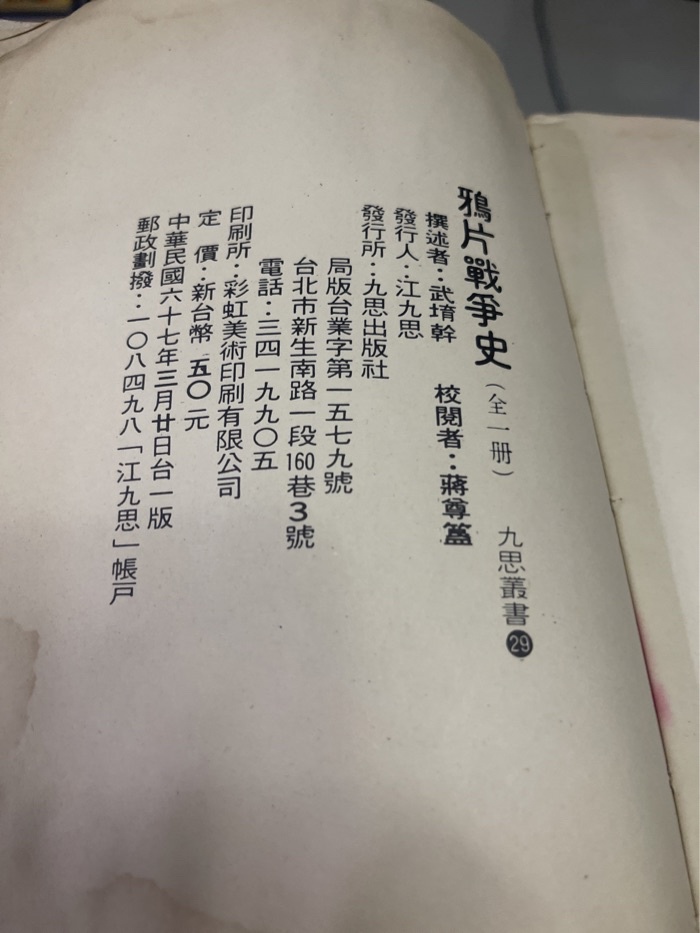 鴉片戰爭史（全一册） 九思叢書29
撰述者：武堉幹 校閱者：蔣尊簋
發行人：江九思
發行所：九思出版社
局版台業字第一五七九號
台北市新生南路一段160巷3號
電話：三四一九九〇五
印刷所：彩虹美術印刷有限公司
定價：新台幣 五〇元
中華民國六十七年三月廿日台一版
郵政劃撥：一〇八四九八「江九思」帳戶